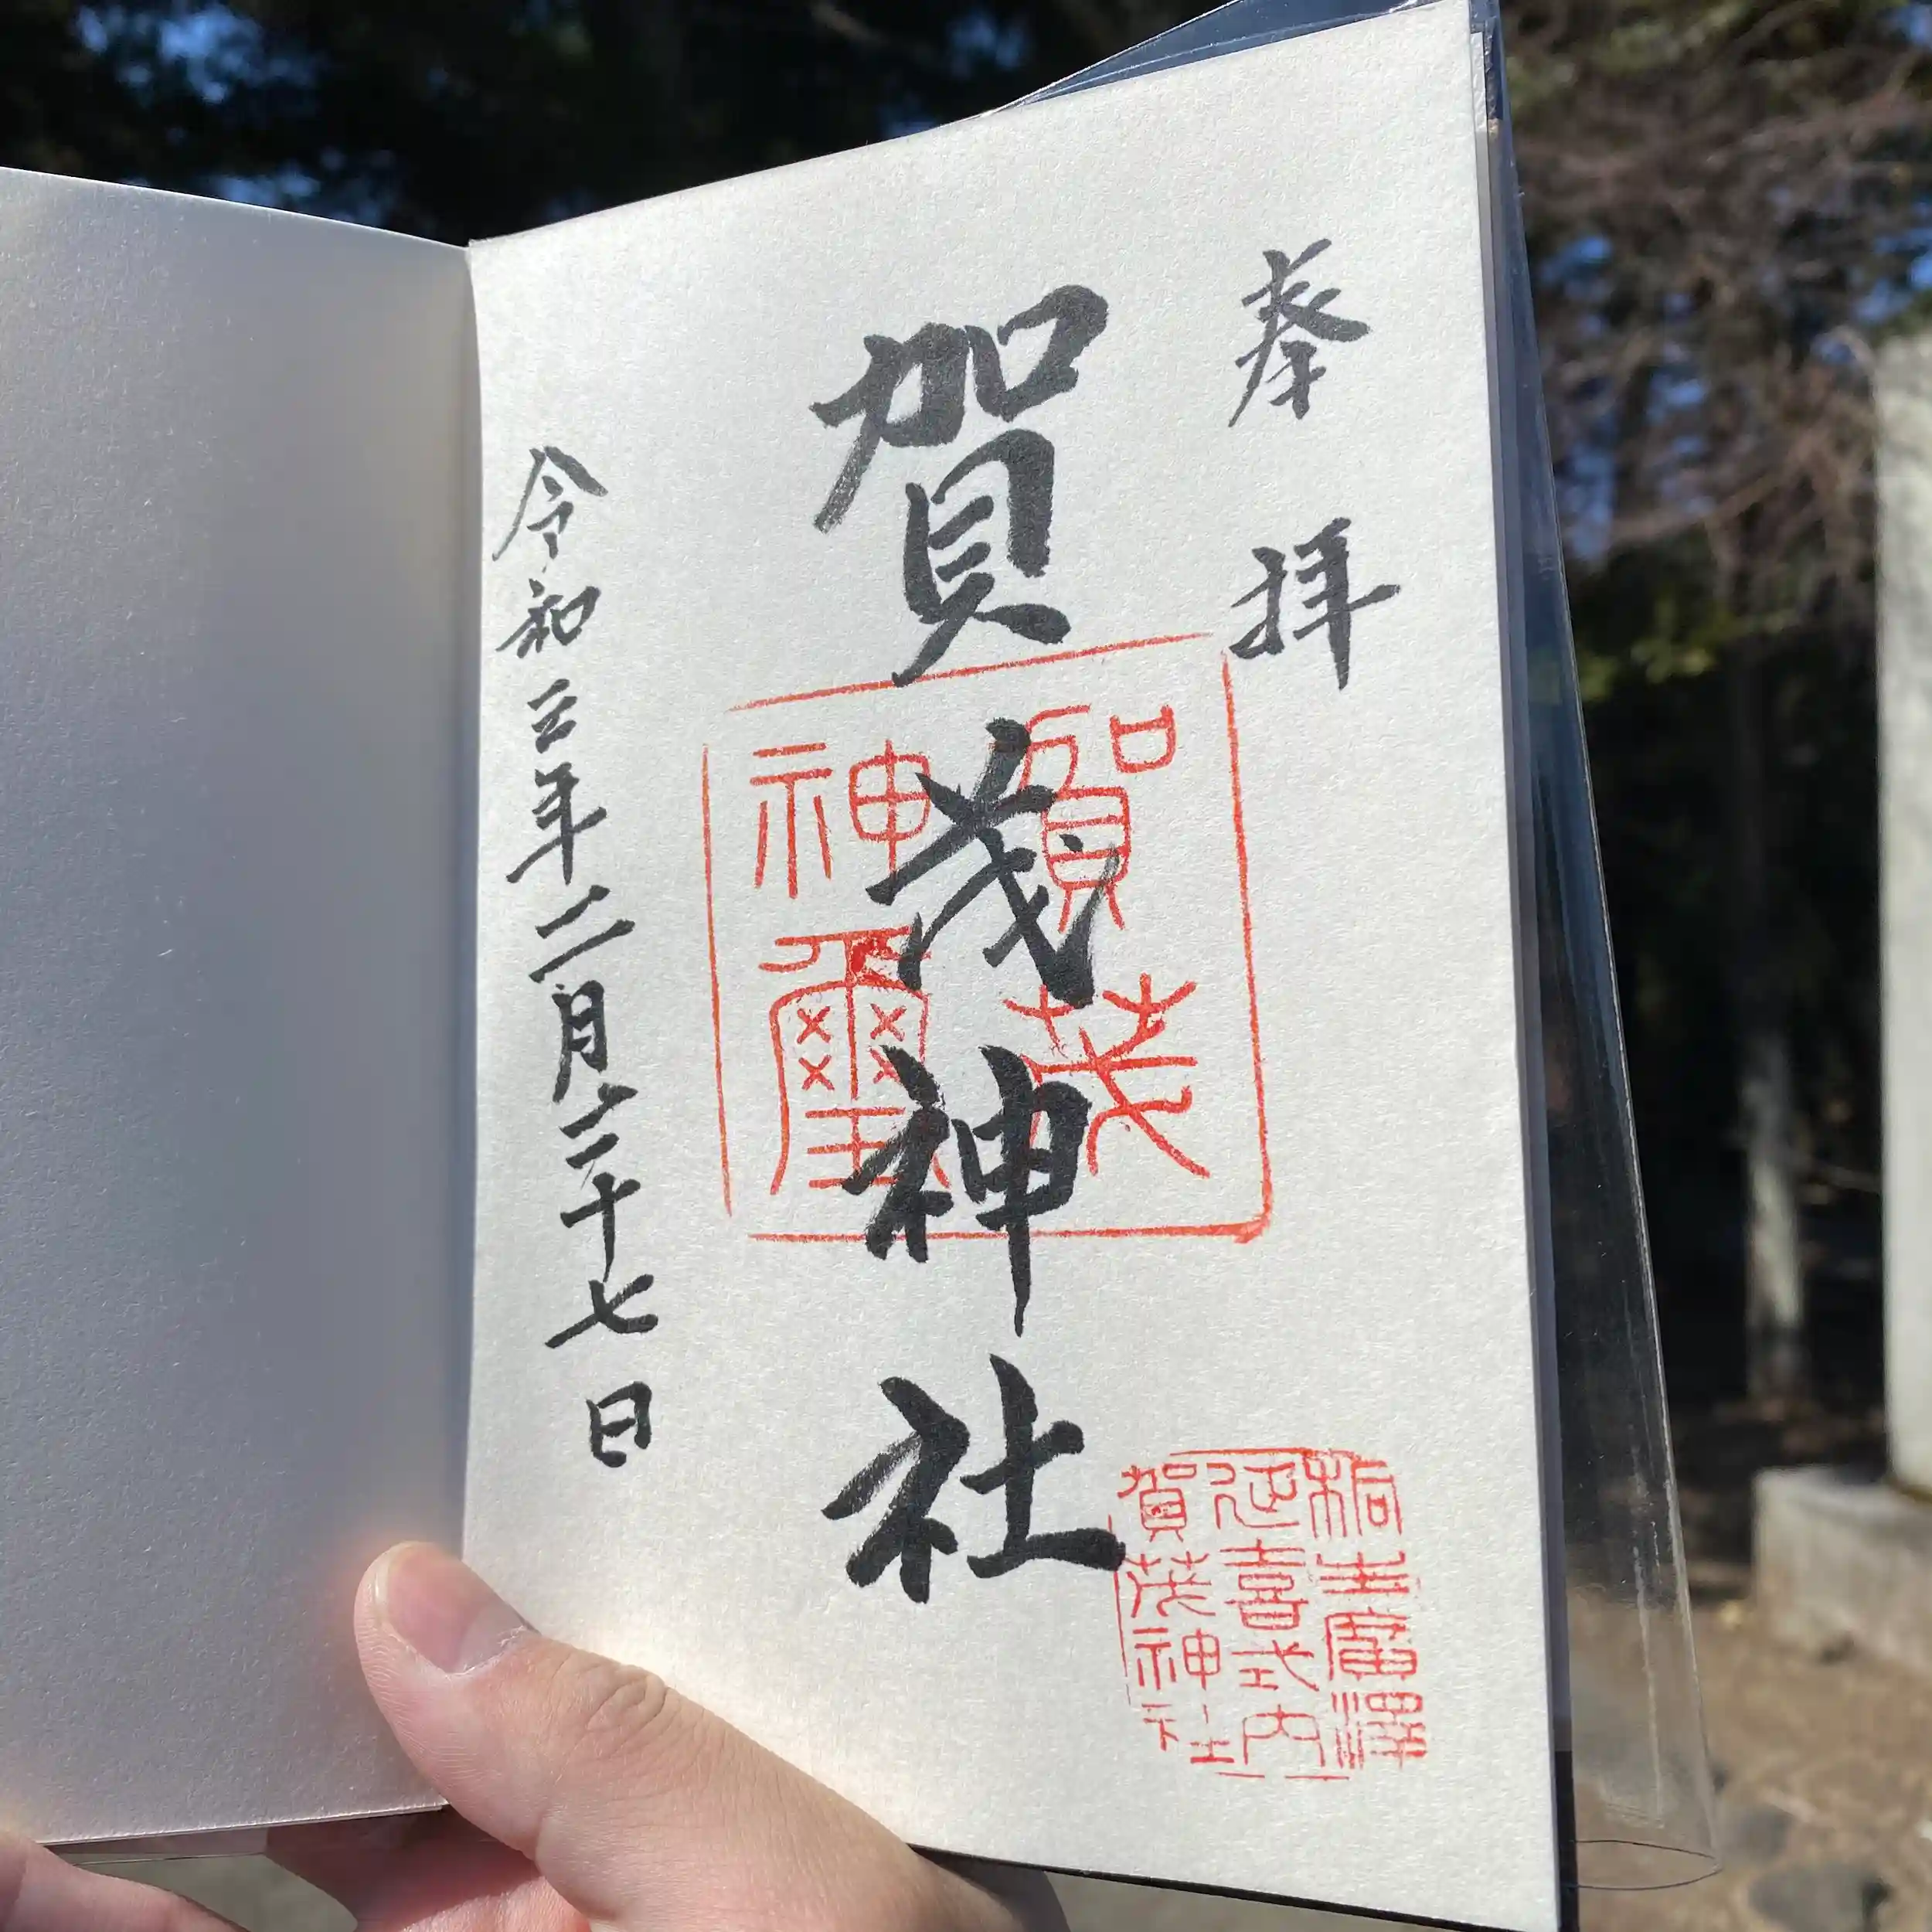 奉拝
賀茂神社
賀茂
神璽
桐生廣澤
延喜式内
賀茂神社
令和三年二月二十七日